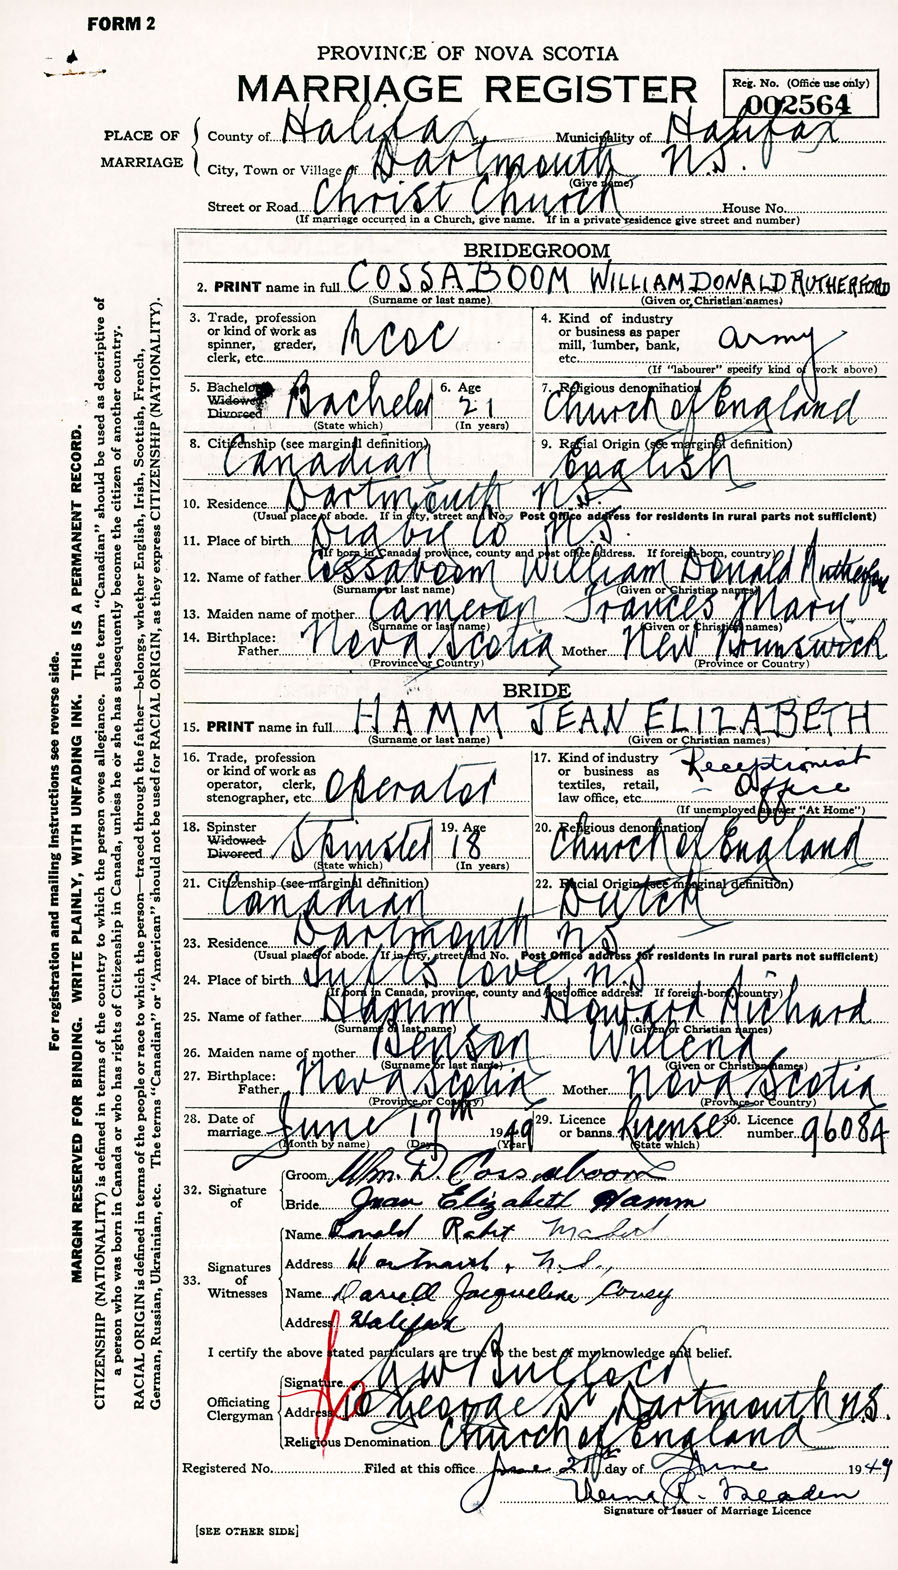 FORM 2
PROVINCE OF NOVA SCOTIA
MARRIAGE REGISTER
Reg. No. (Office use only)
002564
PLACE OF MARRIAGE
County of Halifax Municipality of Halifax
City, Town or Village of Dartmouth N.S.
(Give name)
Street or Road Christ Church House No.
(If marriage occurred in a Church, give name. If in a private residence give street and number)
BRIDEGROOM
2. PRINT name in full COSSABOOM WILLIAM DONALD RUTHERFORD
(Surname or last name) (Given or Christian names)
3. Trade, profession or kind of work as spinner, grader, clerk, etc. RCOC
4. Kind of industry or business as paper mill, lumber, bank, etc. army
(If "labourer" specify kind of work above)
5. Bachelor Widowed Divorced Bachelor
(State which)
6. Age 21
(In years)
7. Religious denomination Church of England
8. Citizenship (see marginal definition) Canadian
9. Racial Origin (see marginal definition) English
10. Residence Dartmouth N.S.
(Usual place of abode. If in city, street and No. Post Office address for residents in rural parts not sufficient)
11. Place of birth Digby Co N.S.
(If born in Canada, province, county and post office address. If foreign-born, country)
12. Name of father Cossaboom William Donald Rutherford
(Surname or last name) (Given or Christian names)
13. Maiden name of mother Cameron Frances Mary
(Surname or last name) (Given or Christian names)
14. Birthplace: Father Nova Scotia Mother New Brunswick
(Province or Country) (Province or Country)
BRIDE
15. PRINT name in full HAMM JEAN ELIZABETH
(Surname or last name) (Given or Christian names)
16. Trade, profession or kind of work as operator, clerk, stenographer, etc. Operator
17. Kind of industry or business as textiles, retail, law office, etc. Receptionist - Office
(If unemployed answer "At Home")
18. Spinster Widowed Divorced Spinster
(State which)
19. Age 18
(In years)
20. Religious denomination Church of England
21. Citizenship (see marginal definition) Canadian
22. Racial Origin (see marginal definition) Dutch
23. Residence Dartmouth N.S.
(Usual place of abode. If in city, street and No. Post Office address for residents in rural parts not sufficient)
24. Place of birth Tufts Cove N.S.
(If born in Canada, province, county and post office address. If foreign-born, country)
25. Name of father Hamm Howard Richard
(Surname or last name) (Given or Christian names)
26. Maiden name of mother Henson Willena
(Surname or last name) (Given or Christian names)
27. Birthplace: Father Nova Scotia Mother Nova Scotia
(Province or Country) (Province or Country)
28. Date of marriage June 17th 1949
(Month by name) (Day) (Year)
29. Licence or banns license
(State which)
30. Licence number 96084
32. Signature of
Groom Wm. D. Cossaboom
Bride Jean Elizabeth Hamm
33. Signatures of Witnesses
Name Ronald Robt
Address Dartmouth, N.S.,
Name Darrell Jacqueline Covey
Address Halifax
I certify the above stated particulars are true to the best of my knowledge and belief.
Officiating Clergyman
Signature A W Bullock
Address George St Dartmouth N.S.
Religious Denomination Church of England
Registered No. Filed at this office June 27th day of June 1949
Verna R.
Signature of Issuer of Marriage Licence
[SEE OTHER SIDE]
For registration and mailing instructions see reverse side.
MARGIN RESERVED FOR BINDING. WRITE PLAINLY, WITH UNFADING INK. THIS IS A PERMANENT RECORD.
CITIZENSHIP (NATIONALITY) is defined in terms of the country to which the person owes allegiance. The term "Canadian" should be used as descriptive of
a person who was born in Canada or who has rights of Citizenship in Canada, unless he or she has subsequently become the citizen of another country.
RACIAL ORIGIN is defined in terms of the people or race to which the person—traced through the father—belongs, whether English, Irish, Scottish, French,
German, Russian, Ukrainian, etc. The terms "Canadian" or "American" should not be used for RACIAL ORIGIN, as they express CITIZENSHIP (NATIONALITY).